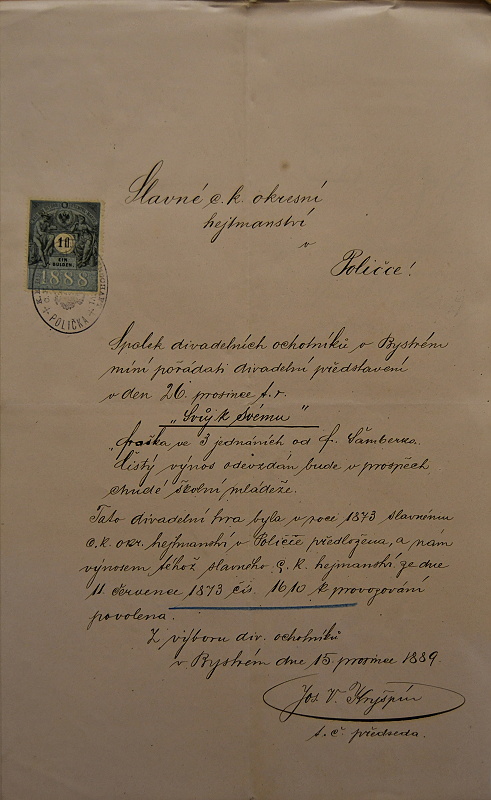 Slavné c. k. okresní
hejtmanství
v
Poličce!
1 fl
EIN
GULDEN
1888
POLIČKA
Spolek divadelních ochotníků v Bystrém
míní pořádati divadelní představení
v den 26. prosince t. r.
"Svůj k Svému"
fraška ve 3 jednáních od F. Šamberka.
Čistý výnos odevzdán bude v prospěch
chudé školní mládeže.
Tato divadelní hra byla v roce 1873 slavnému
c. k. okr. hejtmanství v Poličce předložena, a nám
výnosem téhož slavného c. k. hejmanství ze dne
11. července 1873 čís. 1610 k provozování
povolena.
Z výboru div. ochotníků
v Bystrém dne 15. prosince 1889.
Jos. V. Kryšpín
t. č. předseda.